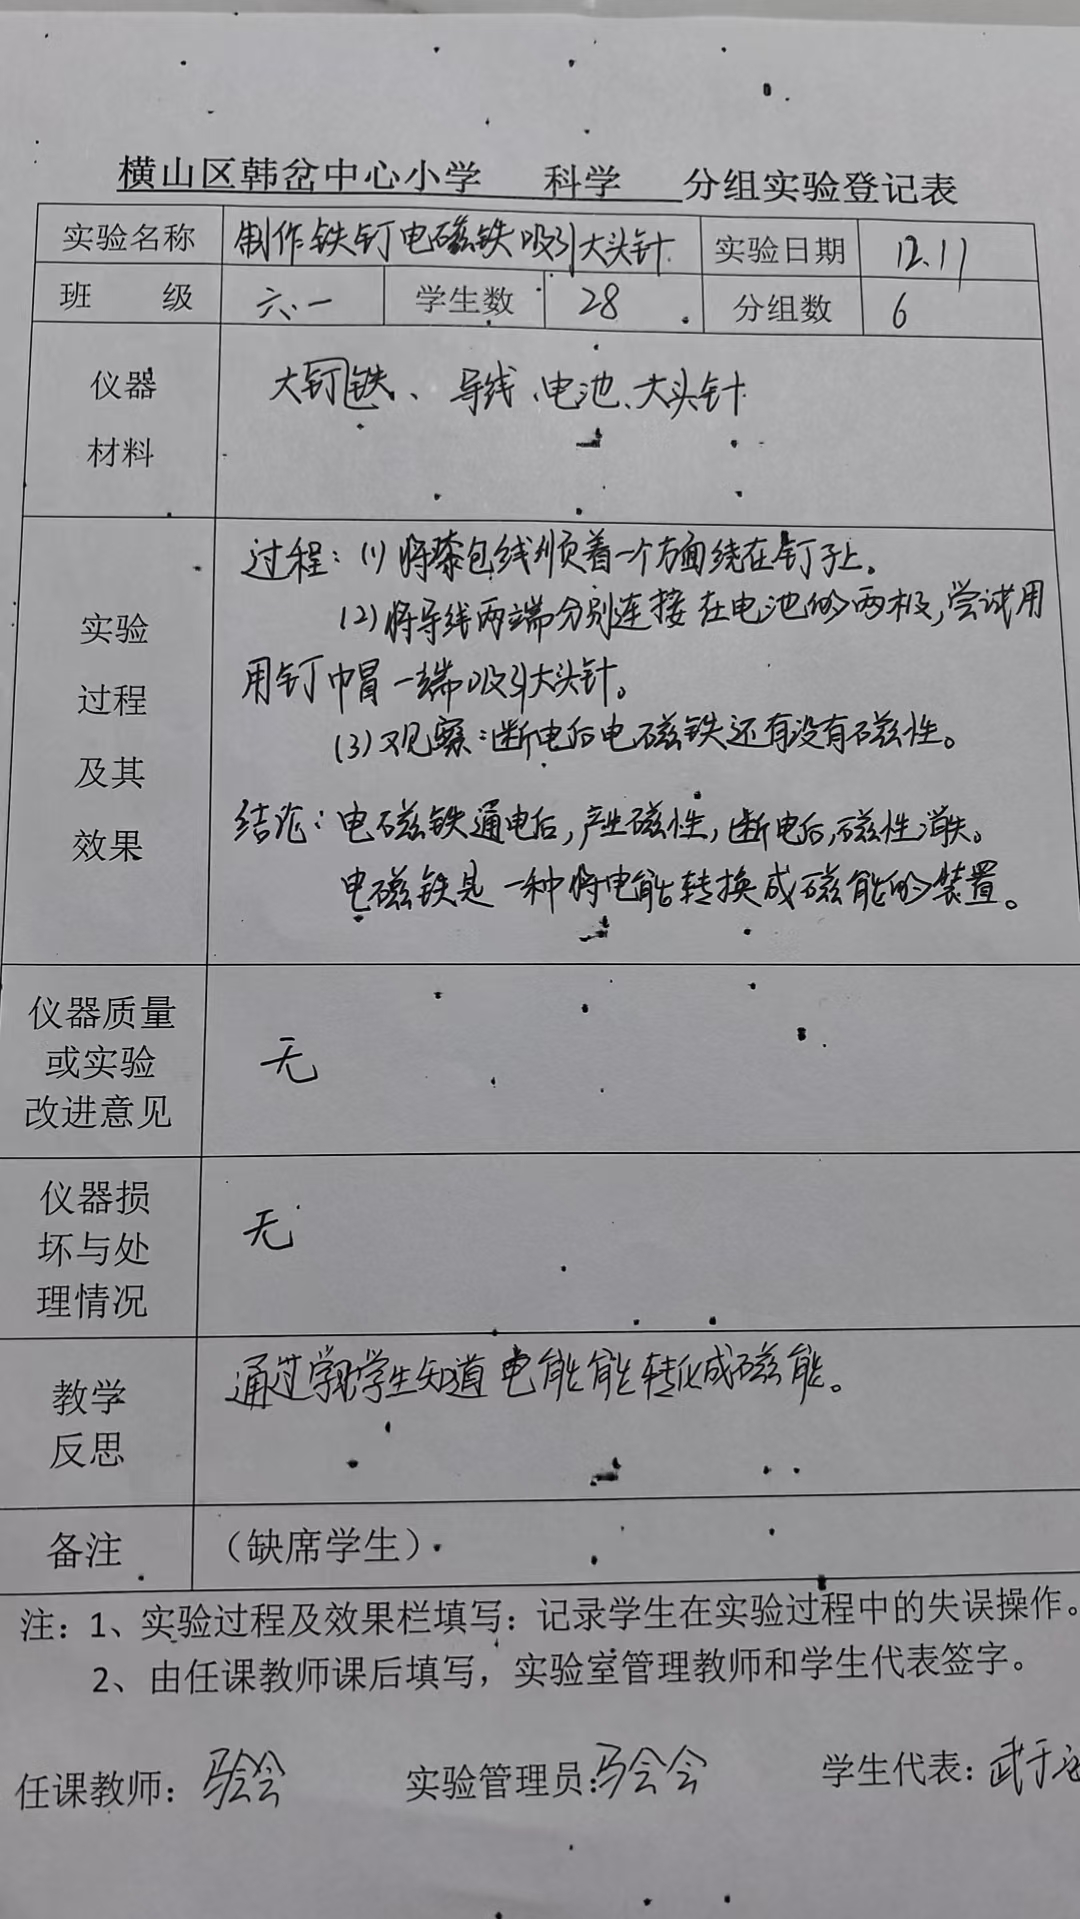 横山区韩岔中心小学 科学 分组实验登记表
实验名称 制作铁钉电磁铁吸引大头针 实验日期 12.11
班 级 六.一 学生数 28 分组数 6
仪器
材料
大钉铁、导线、电池、大头针
实验
过程
及其
效果
过程：(1)将漆包线顺着一个方面绕在钉子上。
(2)将导线两端分别连接在电池的两极，尝试用
用钉巾冒一端吸引大头针。
(3)观察：断电后电磁铁还有没有磁性。
结论：电磁铁通电后，产生磁性，断电后，磁性消失。
电磁铁是一种将电能转换成磁能的装置。
仪器质量
或实验
改进意见
无
仪器损
坏与处
理情况
无
教学
反思
通过学习学生知道电能能转化成磁能。
备注 （缺席学生）
注：1、实验过程及效果栏填写：记录学生在实验过程中的失误操作。
2、由任课教师课后填写，实验室管理教师和学生代表签字。
任课教师：马会会 实验管理员：马会会 学生代表：武于